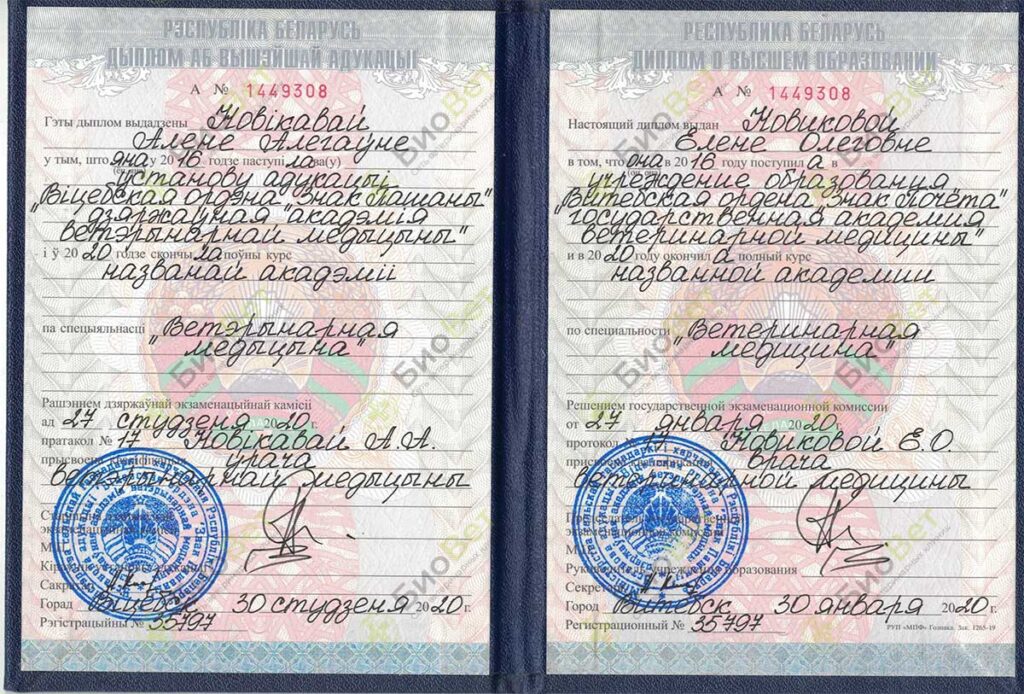 РЭСПУБЛІКА БЕЛАРУСЬ
ДЫПЛОМ АБ ВЫШЭЙШАЙ АДУКАЦЫІ
А № 1449308
Гэты дыплом выдадзены Новікавай
Алене Алегаўне
у тым, што яна у 2016 годзе паступіла ва(у)
установу адукацыі
"Віцебская ордэна "Знак Пашаны"
дзяржаўная "акадэмія
ветэрынарнай медыцыны"
і ў 2020 годзе скончыла поўны курс
названай акадэміі
па спецыяльнасці "Ветэрынарная
медыцына"
Рашэннем дзяржаўнай экзаменацыйнай камісіі
ад 27 студзеня 2020 г.
пратакол № 17 Новікавай А. А.
урача
ветэрынарнай медыцыны
Горад Віцебск 30 студзеня 2020 г.
Рэгістрацыйны № 35797
РЕСПУБЛИКА БЕЛАРУСЬ
ДИПЛОМ О ВЫСШЕМ ОБРАЗОВАНИИ
А № 1449308
Настоящий диплом выдан Новиковой
Елене Олеговне
в том, что она в 2016 году поступила в
учреждение образования
"Витебская ордена "Знак Почёта"
государственная академия
ветеринарной медицины"
и в 2020 году окончила полный курс
названной академии
по специальности "Ветеринарная
медицина"
Решением государственной экзаменационной комиссии
от 27 января 2020 г.
протокол № 17 Новиковой Е. О.
врача
ветеринарной медицины
Город Витебск 30 января 2020 г.
Регистрационный № 35797
РУП «МПФ» Гознака. Зак. 1265-19